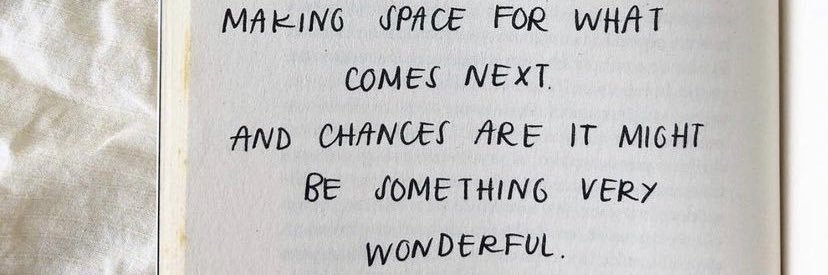 MAKING SPACE FOR WHAT
COMES NEXT.
AND CHANCES ARE IT MIGHT
BE SOMETHING VERY
WONDERFUL.